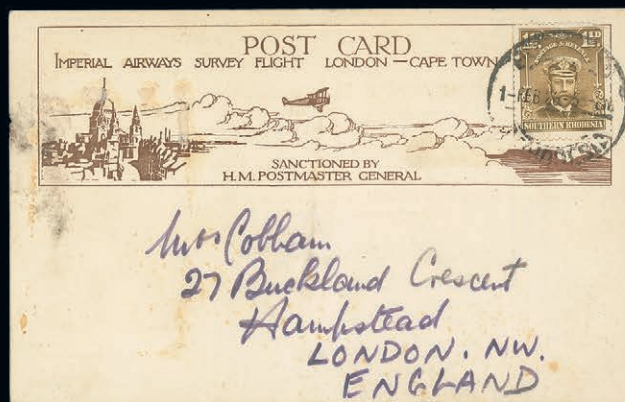 POST CARD
IMPERIAL AIRWAYS SURVEY FLIGHT LONDON — CAPE TOWN
SANCTIONED BY
H.M. POSTMASTER GENERAL
SOUTHERN RHODESIA
Mrs Cobham
27 Buckland Crescent
Hampstead
LONDON. NW.
ENGLAND